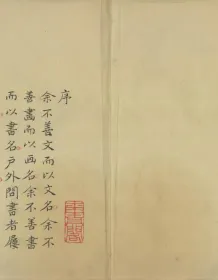 序
余不善文而以文名余不
善畫而以画名余不善書
而以書名戶外間書者屨